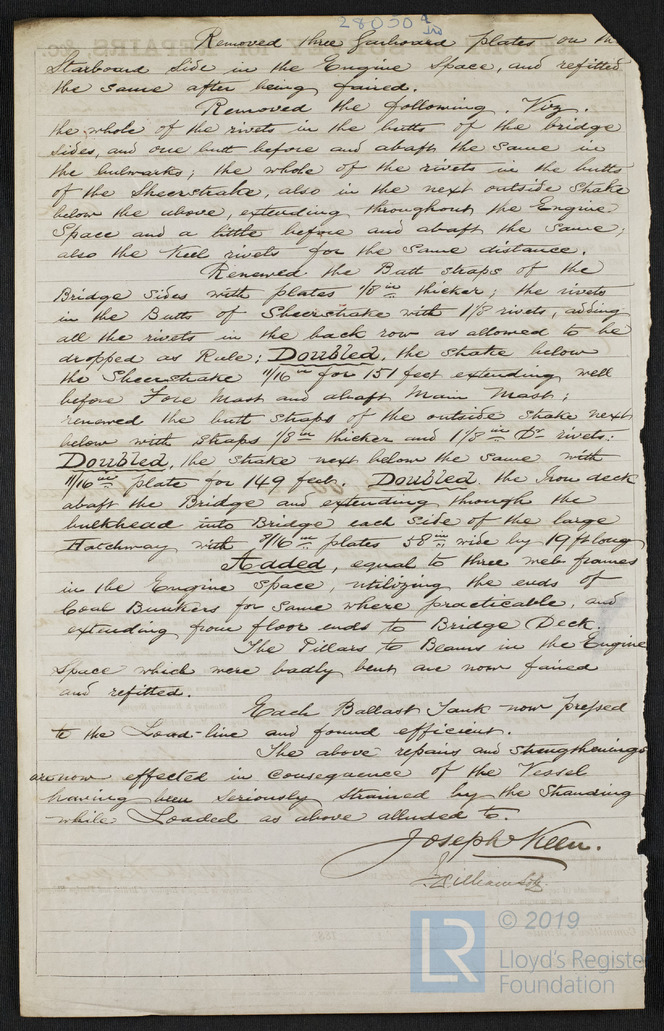 28050
3rd
Removed three Garboard plates on the
Starboard Side in the Engine Space, and refitted
the same after being faired.
Removed the following. Viz.
the whole of the rivets in the butts of the bridge
sides, and one butt before and abaft the same in
the bulwarks; the whole of the rivets in the butts
of the Sheerstrake, also in the next outside strake
below the above, extending throughout the Engine
Space and a little before and abaft the same;
also the Keel rivets for the same distance.
Renewed the Butt straps of the
Bridge sides with plates 1/8 in thicker; the rivets
in the Butts of Sheerstrake with 1 1/8 rivets, adding
all the rivets in the back row as allowed to be
dropped as Rule; Doubled, the strake below
the Sheerstrake 11/16 in for 151 feet extending well
before Fore Mast and abaft Main Mast;
renewed the butt straps of the outside strake next
below with straps 1/8 in thicker and 1 1/8 in Dr rivets:
Doubled, the strake next below the same with
11/16 in plate for 149 feet. Doubled the Iron deck
abaft the Bridge and extending through the
bulkhead into Bridge each side of the large
Hatchway with /16 in plates 58 in wide by 19 ft long
Added, equal to three web frames
in the Engine Space, utilizing the ends of
Coal Bunkers for same where practicable, and
extending from floor ends to Bridge Deck.
The Pillars to Beams in the Engine
Space which were badly bent are now faired
and refitted.
Each Ballast Tank now pressed
to the Load-line and found efficient.
The above repairs and strengthenings
are now effected in consequence of the Vessel
having been seriously strained by the Stranding
while Loaded as above alluded to.
Joseph Keen.
J. Williamson
LR
© 2019
Lloyd's Register
Foundation